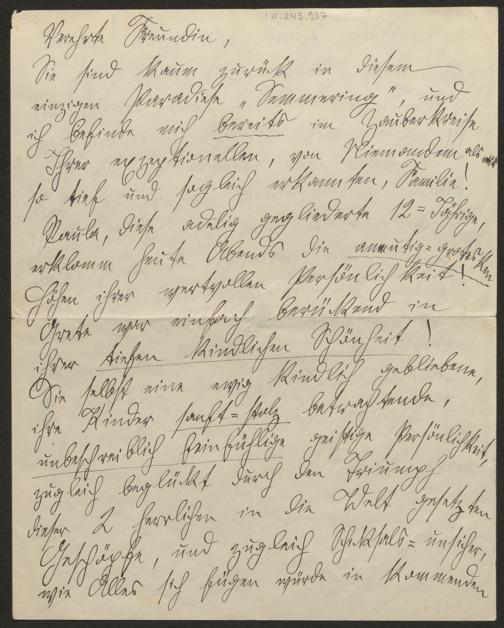 IN 243.937
Verehrte Freundin,
Sie sind kaum zurück in diesem
einzigen Paradiese „Semmering", und
ich befinde mich bereits im Zauberkreise
Ihrer exzeptionellen, von Niemandem als mir
so tief und sogleich erkannten, Familie!
Paula, diese adelig gegliederte 12=Jährige,
erklomm heute Abends die anmutig=grotesken
Höhen ihrer wertvollen Persönlichkeit!
Grete war einfach berückend in
ihrer tiefen kindlichen Schönheit!
Sie selbst eine ewig kindlich gebliebene,
ihre Kinder sanft=stolz betrachtende,
unbeschreiblich feinfühlige geistige Persönlichkeit,
zugleich beglückt durch den Triumph
dieser 2 herrlichen in die Welt gesetzten
Geschöpfe, und zugleich Schicksals=unsicher,
wie Alles sich fügen würde in kommenden